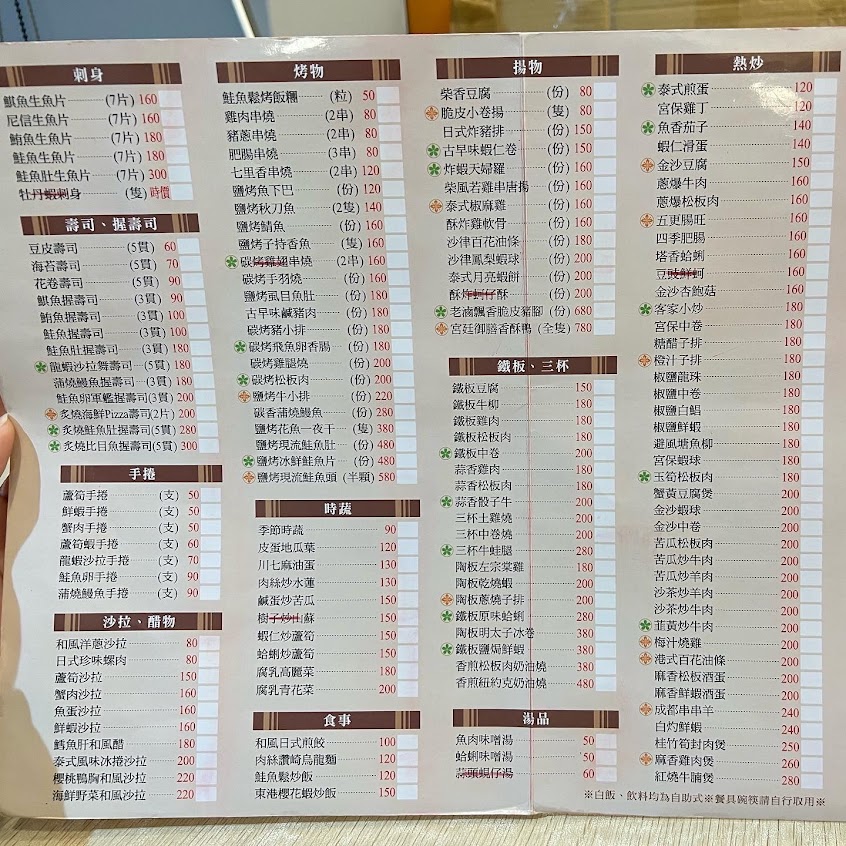 刺身
麒魚生魚片 (7片) 160
尼信生魚片 (7片) 160
鮪魚生魚片 (7片) 180
鮭魚生魚片 (7片) 180
鮭魚肚生魚片 (7片) 300
牡丹蝦刺身 (隻) 時價
壽司、握壽司
豆皮壽司 (5貫) 60
海苔壽司 (5貫) 70
花卷壽司 (5貫) 90
麒魚握壽司 (3貫) 90
鮪魚握壽司 (3貫) 100
鮭魚握壽司 (3貫) 100
鮭魚肚握壽司 (3貫) 180
龍蝦沙拉舞壽司 (5貫) 180
蒲燒鰻魚握壽司 (3貫) 180
鮭魚卵軍艦握壽司 (3貫) 200
炙燒海鮮Pizza壽司 (2片) 200
炙燒鮭魚肚握壽司 (5貫) 280
炙燒比目魚握壽司 (5貫) 300
手捲
蘆筍手捲 (支) 50
鮮蝦手捲 (支) 50
蟹肉手捲 (支) 50
蘆筍蝦手捲 (支) 60
龍蝦沙拉手捲 (支) 70
鮭魚卵手捲 (支) 90
蒲燒鰻魚手捲 (支) 90
沙拉、醋物
和風洋蔥沙拉 80
日式珍味螺肉 80
蘆筍沙拉 150
蟹肉沙拉 160
魚蛋沙拉 160
鮮蝦沙拉 160
鱈魚肝和風醋 180
泰式風味冰捲沙拉 200
櫻桃鴨胸和風沙拉 220
海鮮野菜和風沙拉 220
烤物
鮭魚鬆烤飯糰 (粒) 50
雞肉串燒 (2串) 80
豬蔥串燒 (2串) 80
肥腸串燒 (3串) 80
七里香串燒 (2串) 120
鹽烤魚下巴 (份) 120
鹽烤秋刀魚 (2隻) 140
鹽烤鯖魚 (份) 160
鹽烤子持香魚 (隻) 160
碳烤雞翅串燒 (2串) 160
碳烤手羽燒 (份) 160
鹽烤虱目魚肚 (份) 180
古早味鹹豬肉 (份) 180
碳烤豬小排 (份) 180
碳烤飛魚卵香腸 (份) 180
碳烤雞腿燒 (份) 200
碳烤松板肉 (份) 200
鹽烤牛小排 (份) 220
碳香蒲燒鰻魚 (份) 280
鹽烤花魚一夜干 (隻) 380
鹽烤現流鮭魚肚 (份) 480
鹽烤冰鮮鮭魚片 (份) 480
鹽烤現流鮭魚頭 (半顆) 580
時蔬
季節時蔬 90
皮蛋地瓜葉 120
川七麻油蛋 130
肉絲炒水蓮 130
鹹蛋炒苦瓜 150
樹子炒山蘇 150
蝦仁炒蘆筍 150
蛤蜊炒蘆筍 150
腐乳高麗菜 180
腐乳青花菜 200
食事
和風日式煎餃 100
肉絲讚崎烏龍麵 120
鮭魚鬆炒飯 120
東港櫻花蝦炒飯 150
揚物
柴香豆腐 (份) 80
脆皮小卷揚 (隻) 80
日式炸豬排 (份) 150
古早味蝦仁卷 (份) 150
炸蝦天婦羅 (份) 160
柴風若雞串唐揚 (份) 160
泰式椒麻雞 (份) 160
酥炸雞軟骨 (份) 160
沙律百花油條 (份) 180
沙律鳳梨蝦球 (份) 200
泰式月亮蝦餅 (份) 200
酥炸蚵仔酥 (份) 200
老滷飄香脆皮豬腳 (份) 680
宮廷御膳香酥鴨 (全隻) 780
鐵板、三杯
鐵板豆腐 150
鐵板牛柳 180
鐵板雞肉 180
鐵板松板肉 180
鐵板中卷 200
蒜香雞肉 180
蒜香松板肉 180
蒜香骰子牛 200
三杯土雞燒 200
三杯中卷 200
三杯牛蛙腿 280
陶板左宗棠雞 180
陶板乾燒蝦 200
陶板蔥燒子排 200
鐵板原味蛤蜊 280
陶板明太子冰卷 380
鐵板鹽焗鮮蝦 380
香煎松板肉奶油燒 380
香煎紐約克奶油燒 480
湯品
魚肉味噌湯 50
蛤蜊味噌湯 50
蒜頭蜆仔湯 60
熱炒
泰式煎蛋 120
宮保雞丁 120
魚香茄子 140
蝦仁滑蛋 140
金沙豆腐 150
蔥爆牛肉 160
蔥爆松板肉 160
五更腸旺 160
四季肥腸 160
塔香蛤蜊 160
豆豉鮮蚵 160
金沙杏鮑菇 160
客家小炒 180
宮保中卷 180
糖醋子排 180
橙汁子排 180
椒鹽龍珠 180
椒鹽中卷 180
椒鹽白鯧 180
椒鹽鮮蝦 180
避風塘魚柳 180
宮保蝦球 180
玉筍松板肉 180
蟹黃豆腐煲 200
金沙蝦球 200
金沙中卷 200
苦瓜松板肉 200
苦瓜炒牛肉 200
苦瓜炒羊肉 200
沙茶炒羊肉 200
沙茶炒牛肉 200
韮黃炒牛肉 200
梅汁燒雞 200
港式百花油條 200
麻香松板酒蛋 200
麻香鮮蝦酒蛋 200
成都串串羊 240
白灼鮮蝦 240
桂竹筍封肉煲 250
麻香雞肉煲 260
紅燒牛腩煲 280
※白飯、飲料均為自助式※餐具碗筷請自行取用※